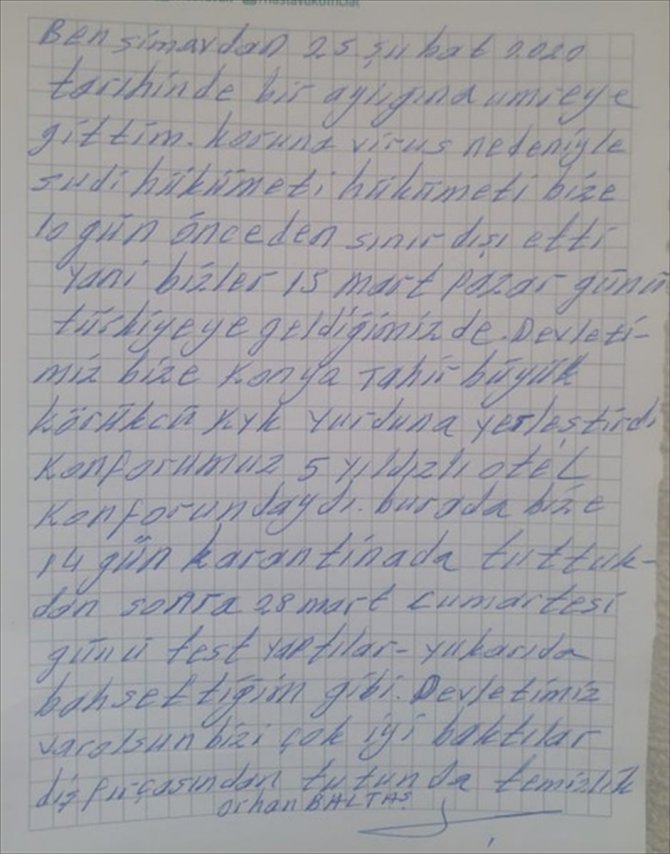 Ben simavdan 25 şubat 2020
tarihinde bir aylığına umreye
gittim. koruna virus nedeniyle
sudi hükümeti hükümeti bize
10 gün önceden sınır dışı etti
Yani bizler 15 mart pazar günü
türkiyeye geldiğimizde. Devleti-
miz bize Konya Tahir büyük
körükcü Kyk yurduna yerleştirdi
Konforumuz 5 yıldızlı otel
Konforundaydı. burada bize
14 gün karantinada tuttuk-
dan sonra 28 mart cumartesi
günü test yaptılar- yukarıda
bahsettiğim gibi. Devletimiz
varolsun bizi çok iyi baktılar
diş fırçasından tutunda temizlik
orhan BALTAŞ